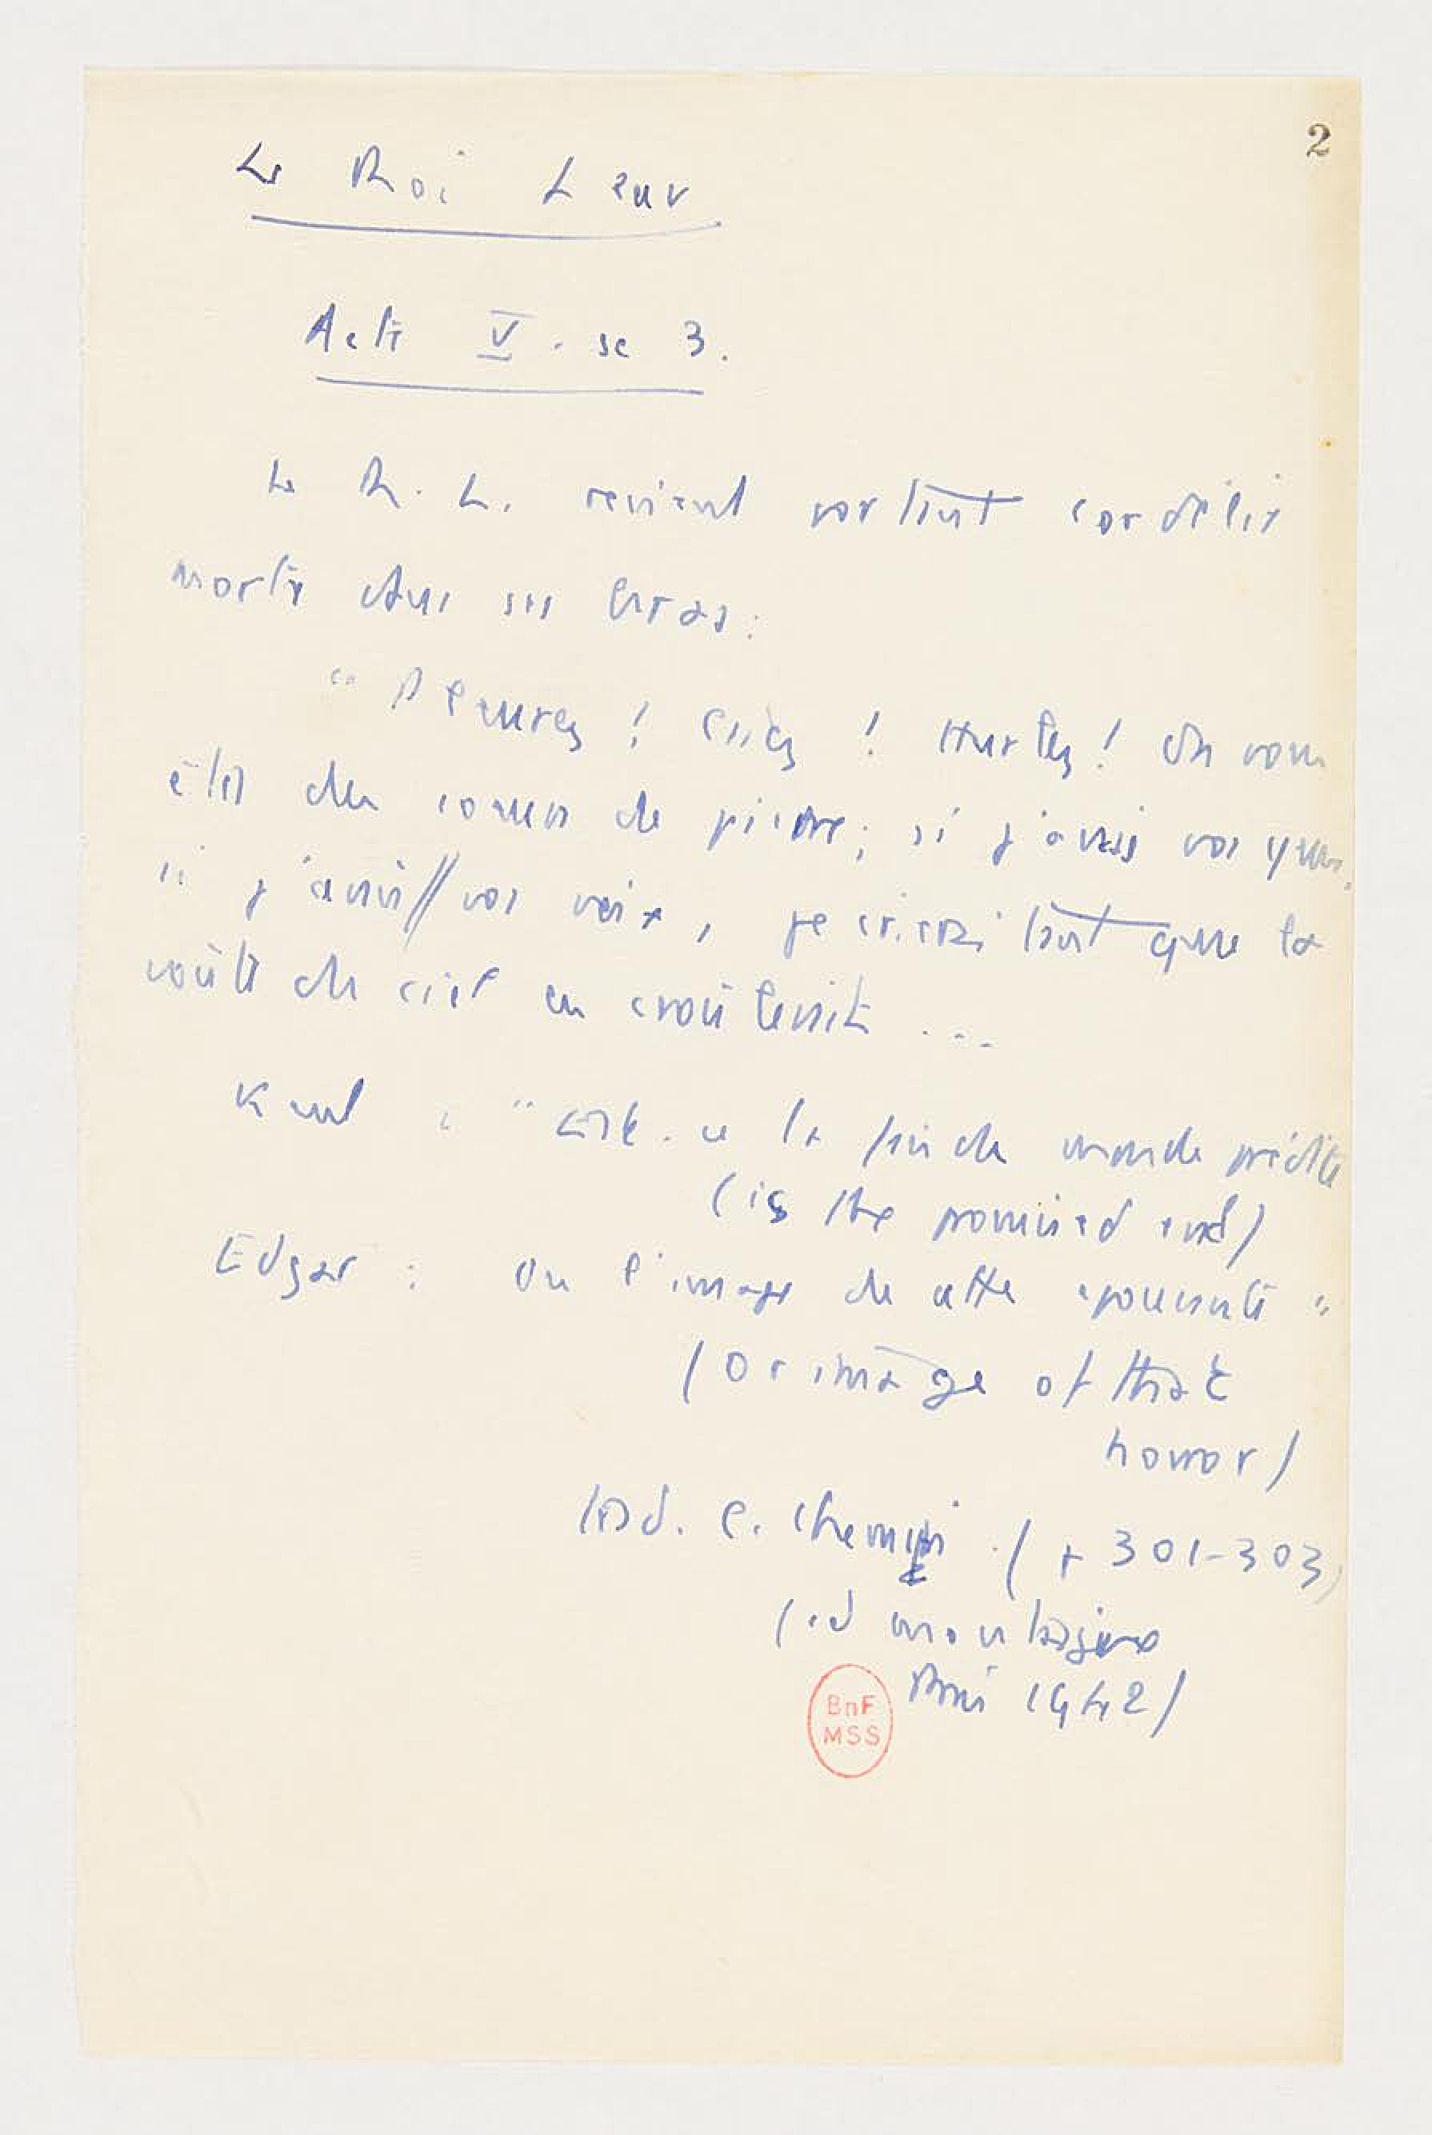 2
Le Roi Lear
Acte V. sc 3.
Le R. L. revient portant Cordélia
morte dans ses bras:
"Pleurez! Criez! Hurlez! Oh vous
êtes des coeurs de pierre; si j'avais vos yeux,
si j'avais // vos voix, je crierai tant que la
voûte du ciel en croûlerait ...
Kent : "Est-ce la fin du monde prédite
(is the promised end)
Edgar : Ou l'image de cette épouvante"
(Or image of that
horror)
trad. C. (p 301-303)
(ed montaigne
Paris 1942)
BnF
MSS